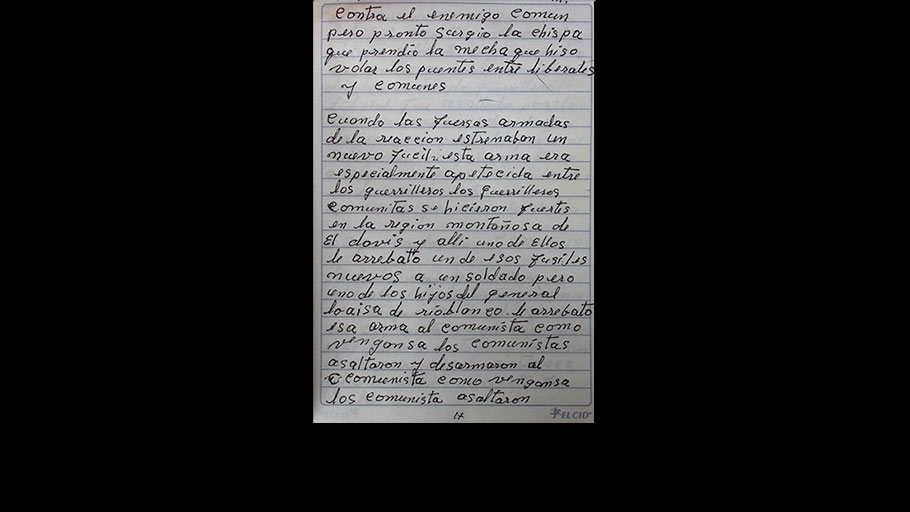 contra el enemigo comun
pero pronto surgio la chispa
que prendio la mecha que hiso
volar los puentes entre liberales
y comunes
cuando las fuersas armadas
de la reaccion estrenaban un
nuevo fucil. esta arma era
especialmente apetecida entre
los guerrilleros los guerrilleros
comunitas se hicieron fuertes
en la region montañosa de
El davis y alli uno de Ellos
le arrebato un de esos fusiles
nuevos a un soldado pero
uno de los hijos del general
loaisa de rioblanco le arrebato
esa arma al comunista como
vengansa los comunistas
asaltaron y desarmaron al
comunista como vengansa
los comunista asaltaron
17
EL CID